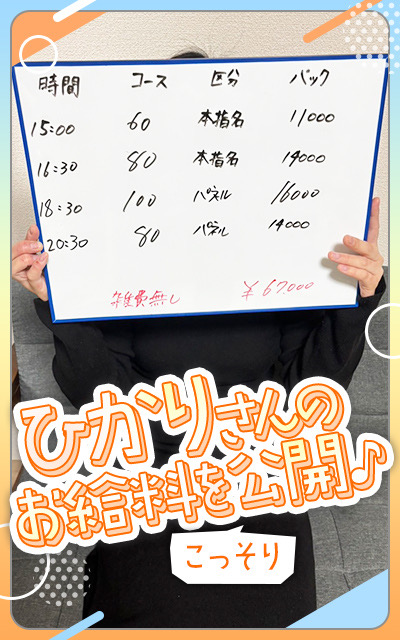 時間 コース 区分 バック
15:00 60 本指名 11000
16:30 80 本指名 14000
18:30 100 パネル 16000
20:30 80 パネル 14000
雑費無し ¥67000
ひかりさんの
お給料を公開♪
こっそり